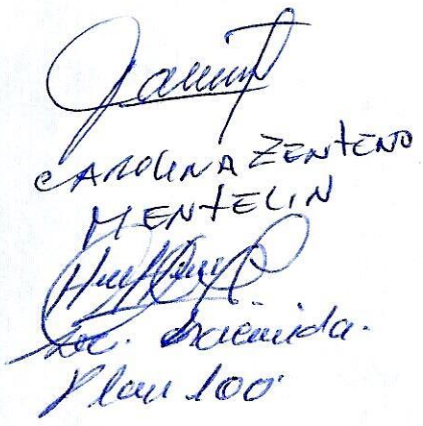 CAROLINA ZENTENO
MENTELIN
Sec. Hacienda.
Plan 100